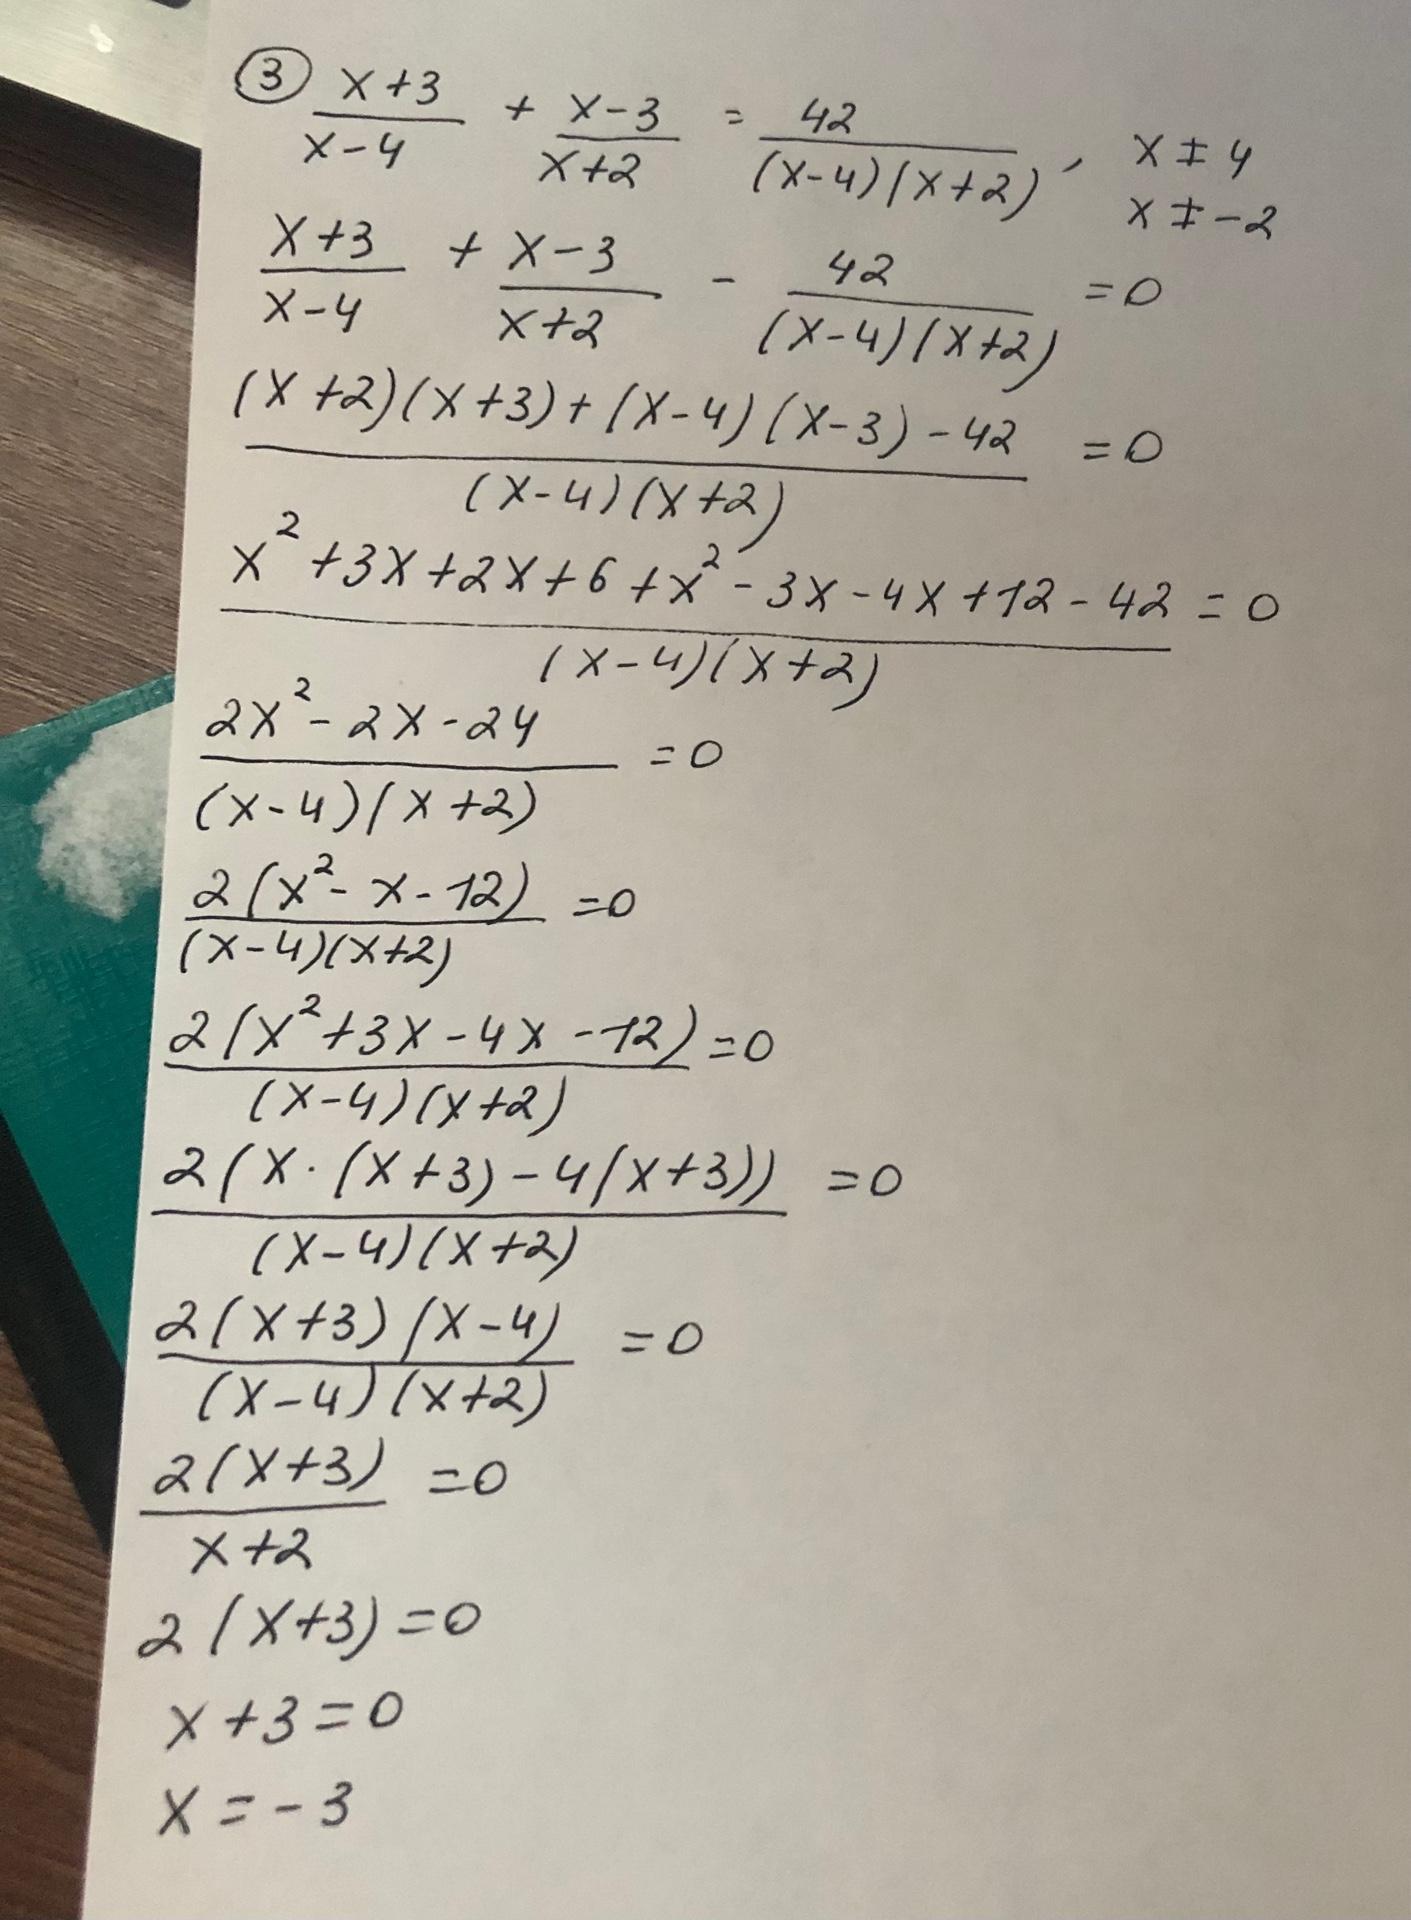 ③ (x+3)/(x-4) + (x-3)/(x+2) = 42/((x-4)(x+2)), x ≠ 4
x ≠ -2
(x+3)/(x-4) + (x-3)/(x+2) - 42/((x-4)(x+2)) = 0
((x+2)(x+3)+(x-4)(x-3)-42)/((x-4)(x+2)) = 0
(x²+3x+2x+6+x²-3x-4x+12-42)/((x-4)(x+2)) = 0
(2x²-2x-24)/((x-4)(x+2)) = 0
(2(x²-x-12))/((x-4)(x+2)) = 0
(2(x²+3x-4x-12))/((x-4)(x+2)) = 0
(2(x·(x+3)-4(x+3)))/((x-4)(x+2)) = 0
(2(x+3)(x-4))/((x-4)(x+2)) = 0
(2(x+3))/(x+2) = 0
2(x+3)=0
x+3=0
x=-3